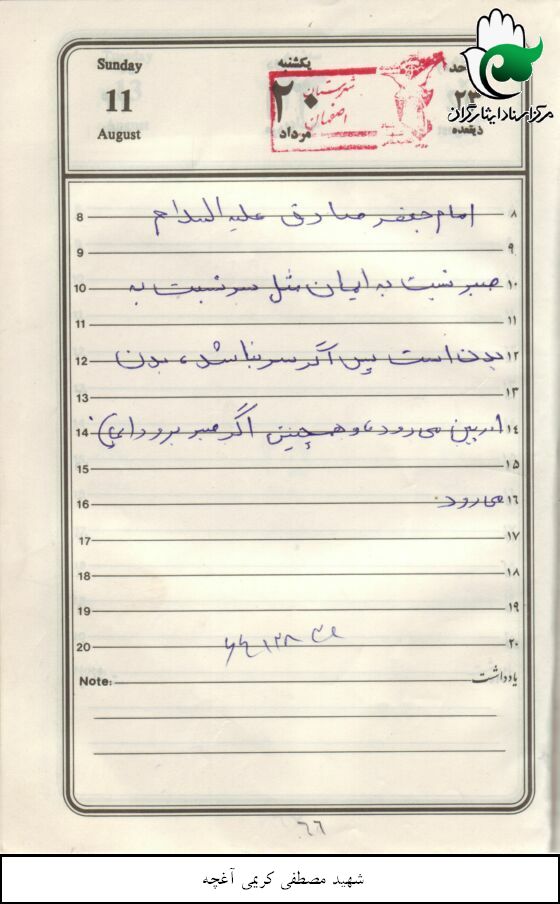 مرکز اسناد ایثارگران
Sunday
یکشنبه
11
۲۰
۲۳
August
مرداد
ذیقعده
شهرستان
اصفهان
8 امام جعفر صادق علیه السلام ۸
9 ۹
10 صبر نسبت به ایمان مثل سر نسبت به ۱۰
11 ۱۱
12 بدن است پس اگر سر نباشد، بدن ۱۲
13 ۱۳
14 از بین می رود، و همچنین اگر صبر برود ایمان ۱۴
15 ۱۵
16 می رود. ۱۶
17 ۱۷
18 ۱۸
19 ۱۹
20 ۲۰
Note: یادداشت
٦٦
شهید مصطفی کریمی آغچه